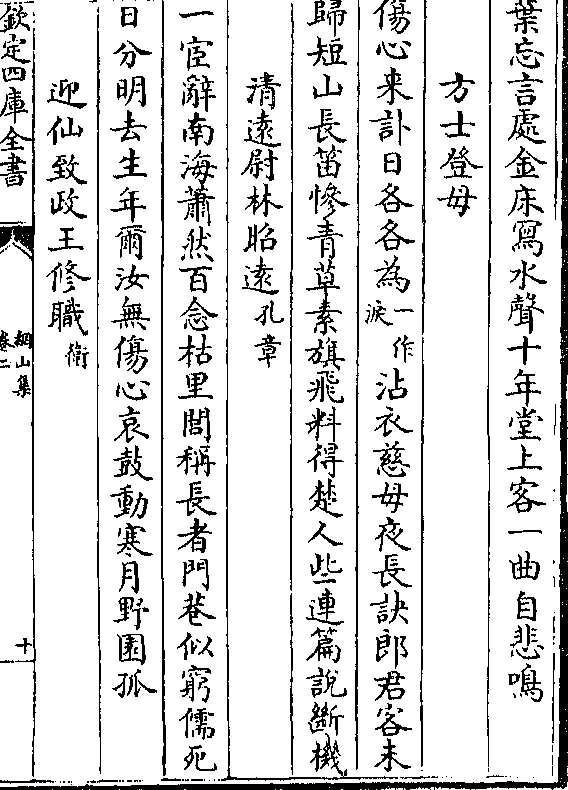 葉忘言處金床寫水聲十年堂上客一曲自悲鳴
方士登母
傷心来訃日各各為一作淚沾衣慈母夜長訣郎君客未
歸短山長笛慘青草素旗飛料得楚人些連篇說斷機
清遠尉林昭遠孔章
一宦辭南海蕭然百念枯里閭稱長者門巷似窮儒死
日分明去生年爾汝無傷心哀鼓動寒月野園孤
迎仙致政王修職衛
欽定四庫全書
綱山集
卷二
十